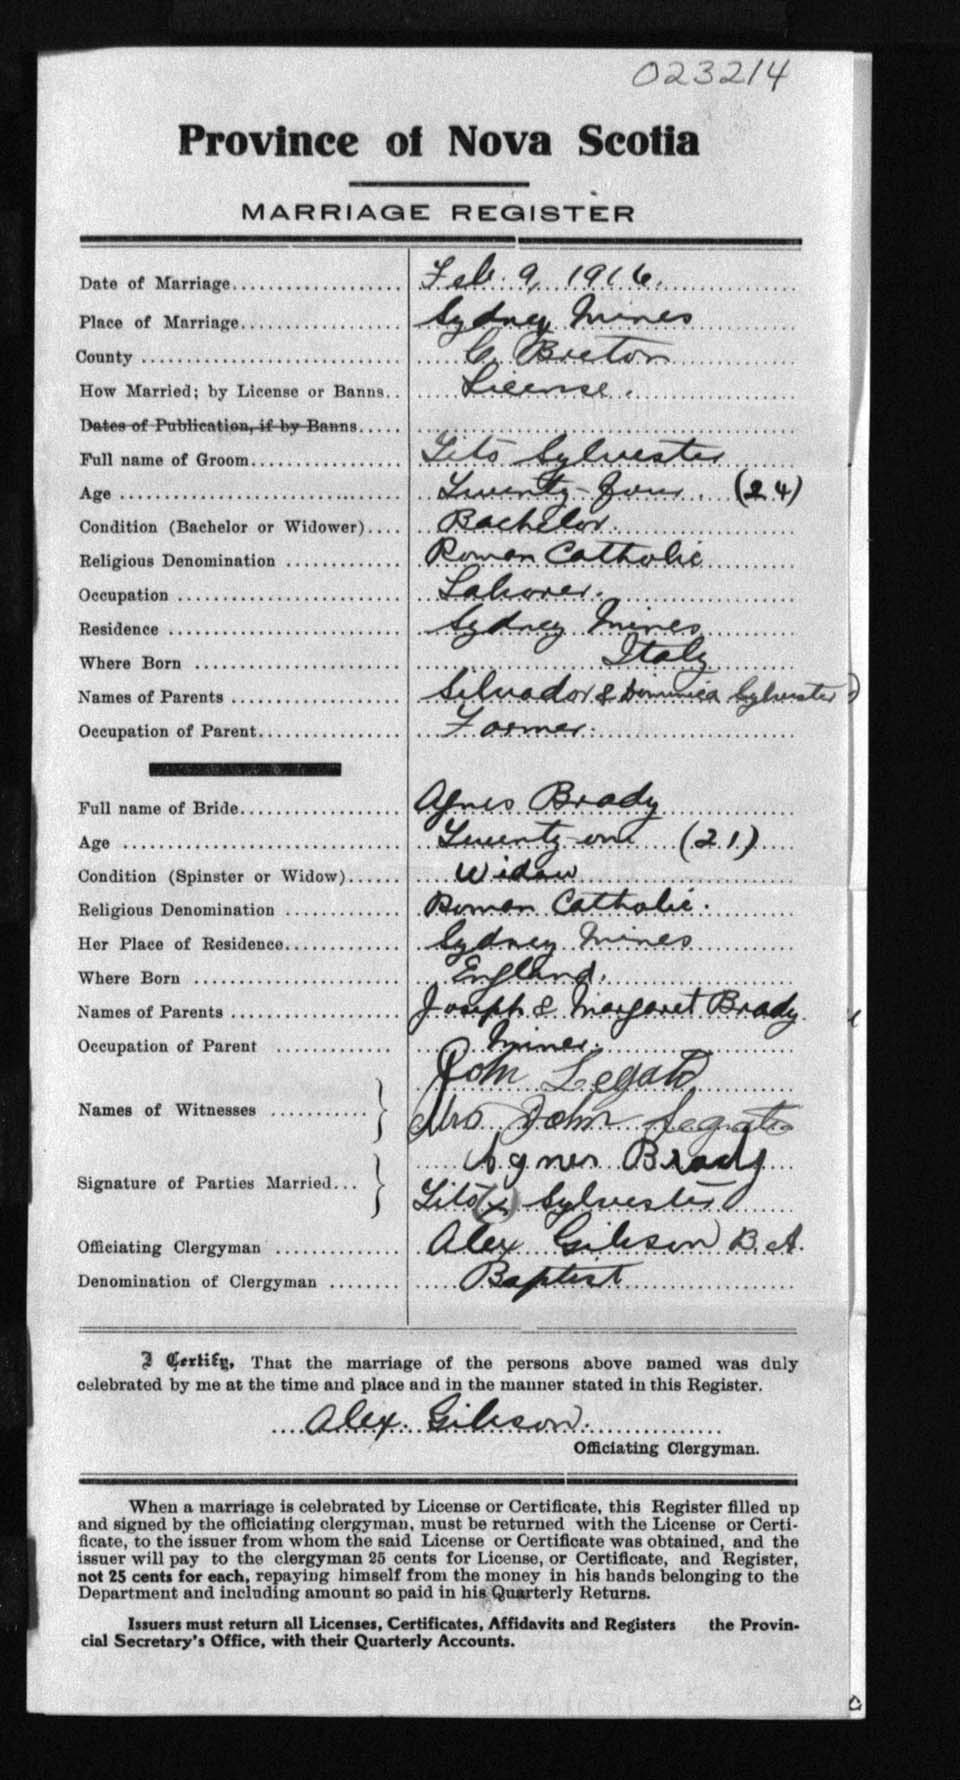 023214
Province of Nova Scotia
MARRIAGE REGISTER
Date of Marriage................... Feb. 9, 1916.
Place of Marriage.................. Sydney Mines
County ............................ C. Breton
How Married; by License or Banns.. License.
Dates of Publication, if by Banns.....
Full name of Groom................. Tito Sylvester
Age ............................... Twenty-four (24)
Condition (Bachelor or Widower).... Bachelor
Religious Denomination ............. Roman Catholic
Occupation ......................... Laborer.
Residence .......................... Sydney Mines
Where Born ........................ Italy
Names of Parents ................... Silvador & Dominica Sylvester
Occupation of Parent................ Farmer.
Full name of Bride.................. Agnes Brady
Age ............................... Twenty-one (21)
Condition (Spinster or Widow)...... Widow
Religious Denomination ............. Roman Catholic.
Her Place of Residence............. Sydney Mines
Where Born ........................ England.
Names of Parents ................... Joseph & Margaret Brady
Occupation of Parent ............. Miner.
John
Names of Witnesses ...........
Mrs John
Agnes Brady
Signature of Parties Married...
Tito x Sylvester
Officiating Clergyman ............. Alex Gibson B.A.
Denomination of Clergyman ........ Baptist
I Certify, That the marriage of the persons above named was duly
celebrated by me at the time and place and in the manner stated in this Register.
Alex. Gibson
Officiating Clergyman.
When a marriage is celebrated by License or Certificate, this Register filled up
and signed by the officiating clergyman, must be returned with the License or Certi-
ficate, to the issuer from whom the said License or Certificate was obtained, and the
issuer will pay to the clergyman 25 cents for License, or Certificate, and Register,
not 25 cents for each, repaying himself from the money in his hands belonging to the
Department and including amount so paid in his Quarterly Returns.
Issuers must return all Licenses, Certificates, Affidavits and Registers the Provin-
cial Secretary's Office, with their Quarterly Accounts.